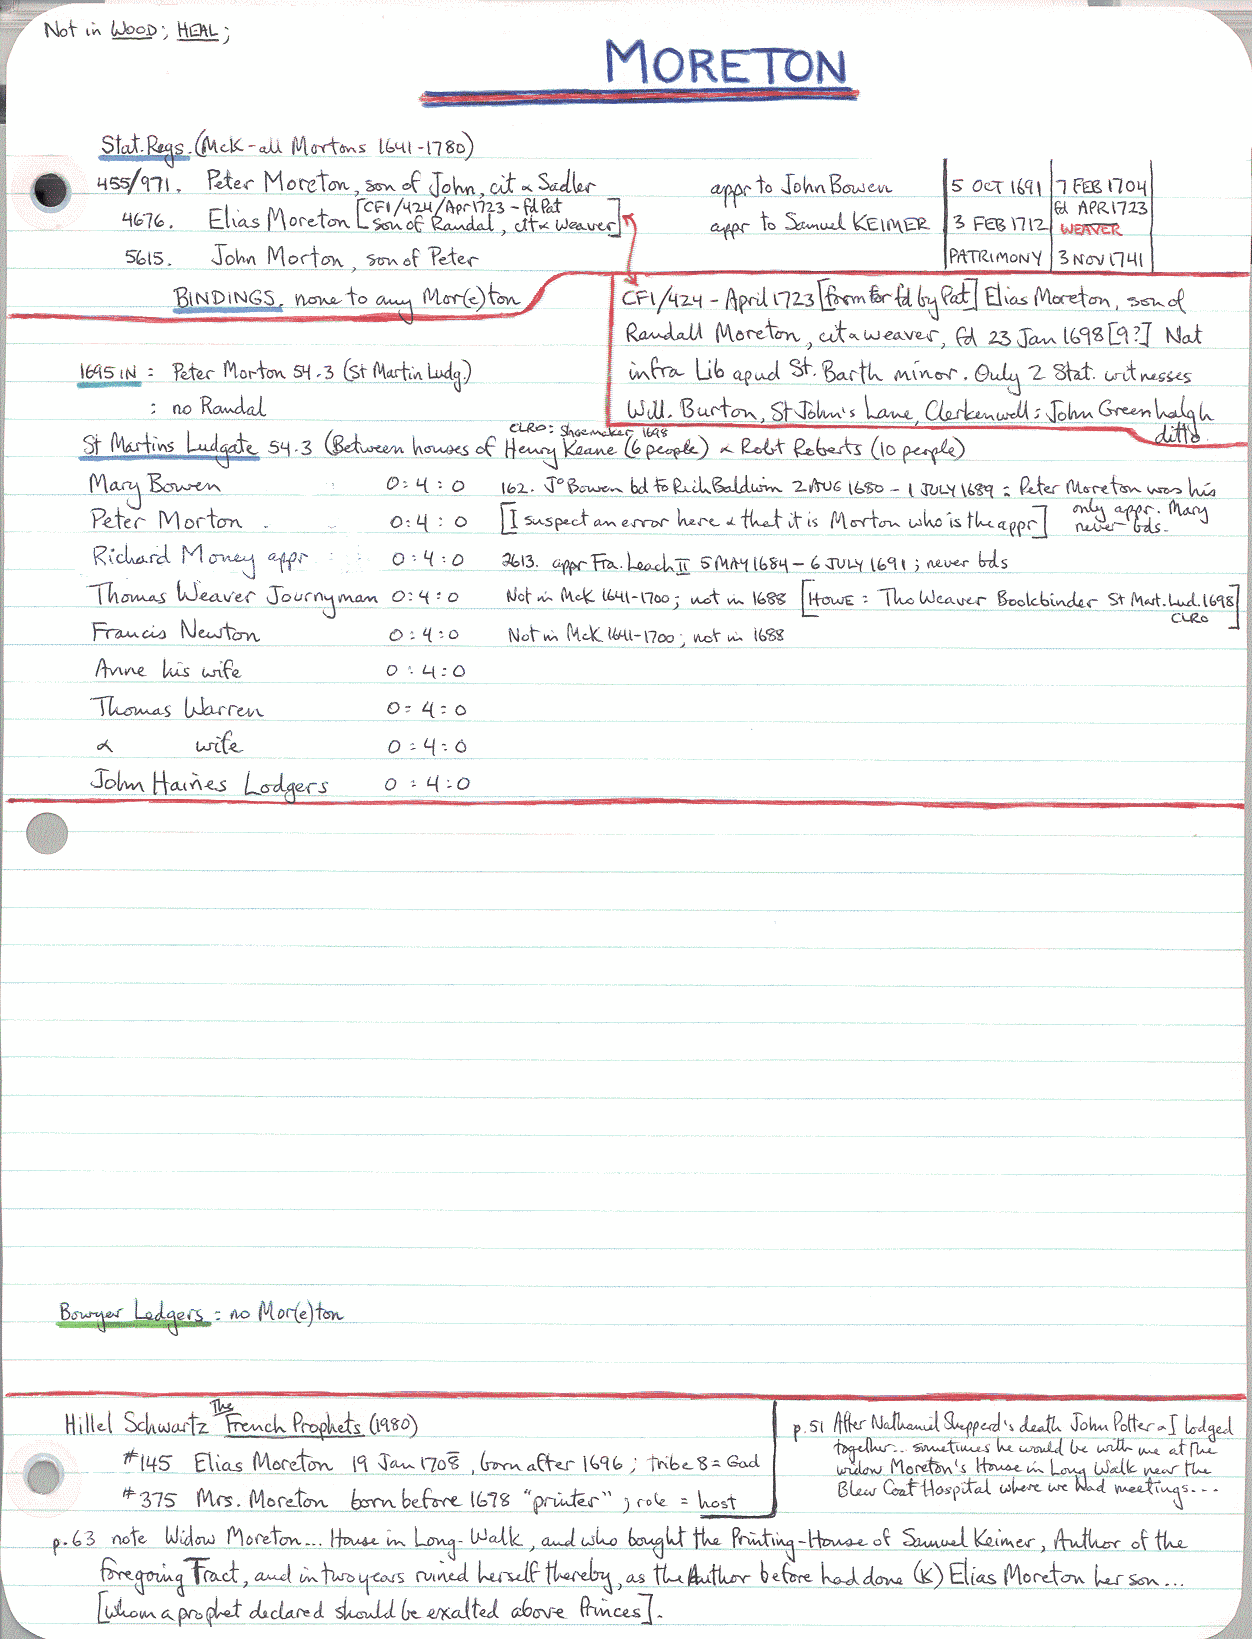 Not in WOOD; HEAL;
MORETON
Stat. Regs. (McK - all Mortons 1641-1780)
455/971. Peter Moreton, son of John, cit & Sadler appr to John Bowen 5 OCT 1691 7 FEB 1704
4676. Elias Moreton [CF1/424/Apr 1723 - fd Pat son of Randal, cit & weaver] appr to Samuel KEIMER 3 FEB 1712 fd APR 1723 WEAVER
5615. John Morton, son of Peter PATRIMONY 3 NOV 1741
BINDINGS. none to any Mor(e)ton
CF1/424 - April 1723 [form for fd by Pat] Elias Moreton, son of
Randall Moreton, cit & weaver, fd 23 Jan 1698[9?] Nat
infra Lib apud St. Barth minor. Only 2 Stat. witnesses
Will. Burton, St John's Lane, Clerkenwell: John Greenhalgh
ditto
1695 IN: Peter Morton 54.3 (St Martin Ludg.)
: no Randal
CLRO: Shoemaker 1698
St Martins Ludgate 54.3 (Between houses of Henry Keane (6 people) & Robt Roberts (10 people)
Mary Bowen 0:4:0 162. Jo Bowen bd to Rich Baldwin 2 AUG 1680 - 1 JULY 1689: Peter Moreton was his
only appr. Mary never bds.
Peter Morton 0:4:0 [I suspect an error here & that it is Morton who is the appr]
Richard Money appr 0:4:0 2613. appr Fra. Leach II 5 MAY 1684 - 6 JULY 1691; never bds
Thomas Weaver Journyman 0:4:0 Not in McK 1641-1700; not in 1688 [HOWE: Tho Weaver Bookbinder St Mart. Lud. 1698]
CLRO
Francis Newton 0:4:0 Not in McK 1641-1700; not in 1688
Anne his wife 0:4:0
Thomas Warren 0:4:0
& wife 0:4:0
John Haines Lodgers 0:4:0
Bowyer Ledgers: no Mor(e)ton
Hillel Schwartz The French Prophets (1980)
#145 Elias Moreton 19 Jan 1708, born after 1696; tribe 8 = Gad
#375 Mrs. Moreton born before 1678 "printer"; role = host
p.51 After Nathaniel Shepperd's death John Potter & I lodged
together... sometimes he would be with me at the
widow Moreton's House in Long Walk near the
Blew Coat Hospital where we had meetings...
p.63 note Widow Moreton... House in Long-Walk, and who bought the Printing-House of Samuel Keimer, Author of the
foregoing Tract, and in two years ruined herself thereby, as the Author before had done (K) Elias Moreton her son...
[whom a prophet declared should be exalted above Princes].